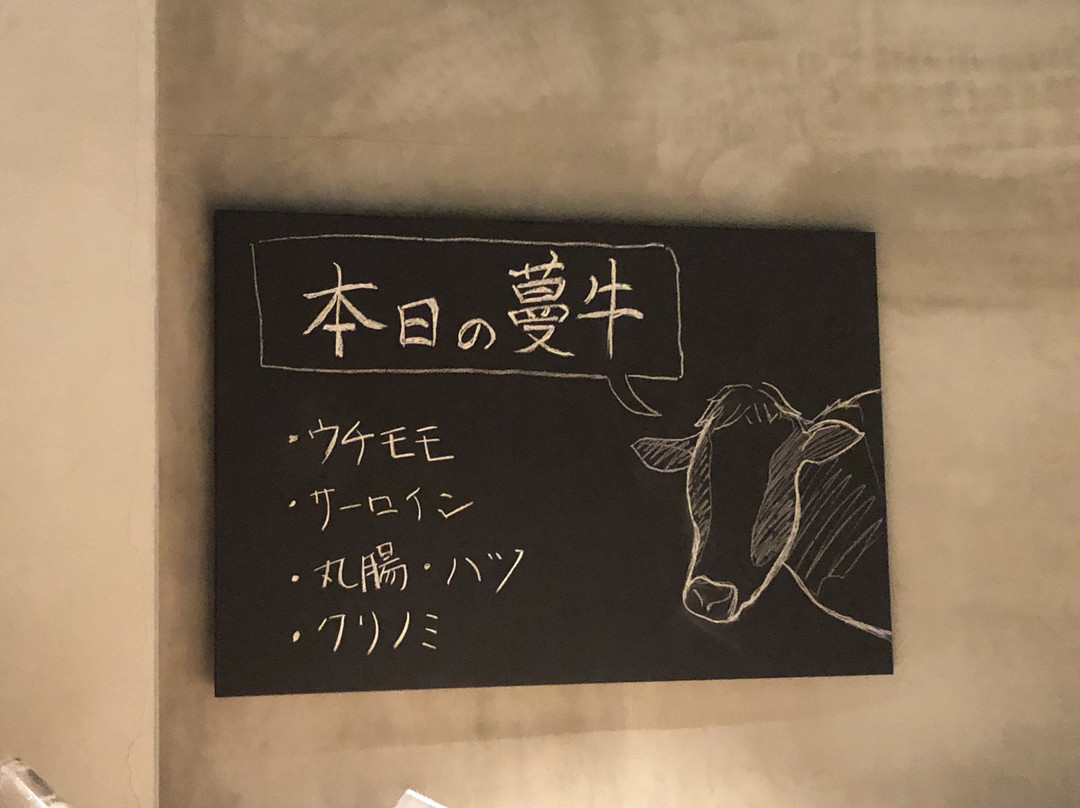 本日の蔓牛
・ウチモモ
・サーロイン
・丸腸・ハツ
・クリノミ